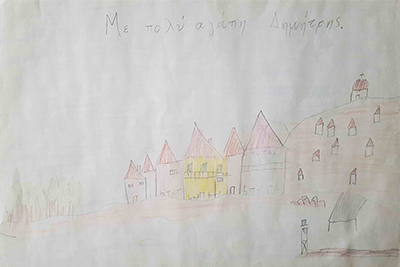 Με πολύ αγάπη Δημήτρης.